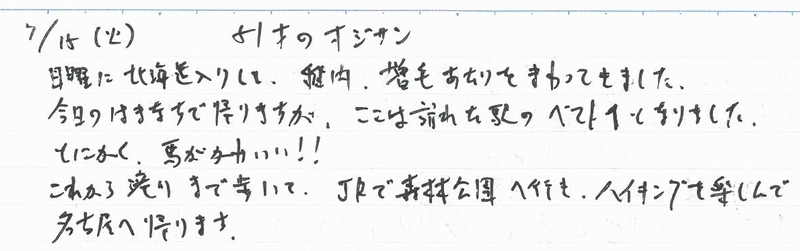 7/15(火) 51才のオジサン
日曜に北海道入りして、稚内、増毛あたりをまわってきました。
今日のはまなすで帰りますが、ここは訪れた駅のベスト1となりました。
とにかく、馬がかわいい!!
これから まで歩いて、JRで森林公園へ行き、ハイキングを楽しんで
名古屋へ帰ります。